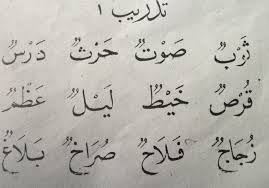 تدريب ١
ثَوْبٌ صَوْتٌ حَرْثٌ دَرْسٌ
قُرْصٌ خَيْطٌ لَيْلٌ عَظْمٌ
زُجَاجٌ فَلَاحٌ صُرَاخٌ بَلَاغٌ